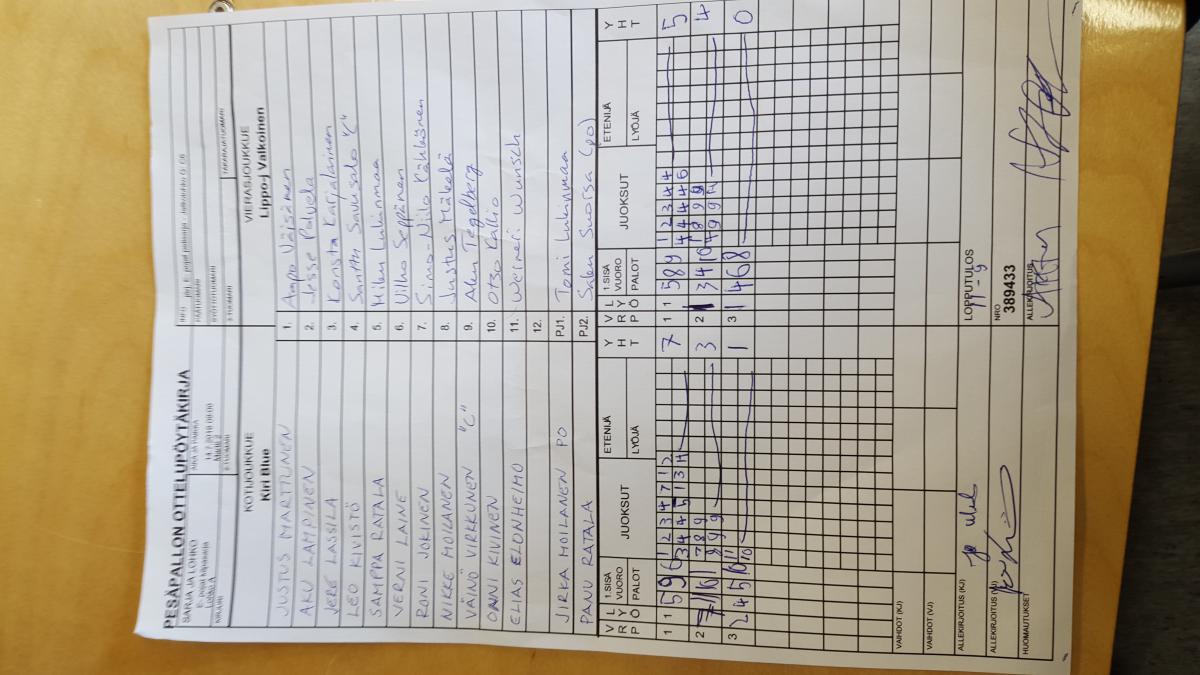 PESÄPALLON OTTELUPÖYTÄKIRJA
SARJA JA LOHKO
E- pojat kilpasarja
Lohko A
AIKA JA PAIKKA
14.7.2018 09:00
INFO
PÄÄTUOMARI
SYÖTTÖTUOMARI
2-TUOMARI
3-TUOMARI
TAKARAJATUOMARI
KOTIJOUKKUE
Kiri Blue
VIERASJOUKKUE
Lippo-j Valkoinen
JUSTUS MARTTUNEN 1. Aapo Väisänen
AKU LAMPINEN 2. Jesse Palvela
JERE LASSILA 3. Konsta Karjalainen
LEO KIVISTÖ 4. Santtu Savusalo "C"
SAMPPA RATALA 5. Milan Lukinmaa
VERNI LAINE 6. Vilho Seppänen
RONI JOKINEN 7. Simo-Niilo Kähkönen
NIKKE MOILANEN 8. Justus Mäkelä
VÄINÖ VIRKKUNEN "C" 9. Alen Tegelberg
ONNI KIVINEN 10. Otso Kallio
ELIAS ELONHEIMO 11. Werneri Wunsch
12.
JIRKA MOILANEN PO PJ1. Tomi Lukinmaa
PANU RATALA PJ2. Saken Suorsa (po)
V R P L Y Ö 1.SISÄ VUORO PALOT JUOKSUT ETENIJÄ LYÖJÄ Y H T V R P L Y Ö 1.SISÄ VUORO PALOT JUOKSUT ETENIJÄ LYÖJÄ Y H T
1 1 5 9 6 1 2 3 4 7 12 7 1 1 5 8 9 1 2 3 4 4 5
3 4 4 5 1 3 11 4 4 4 4 5
2 7 8 9 3 2 3 4 10 4
8 9 9
3 2 4 5 10 11 1 3 1 4 6 8 0
10
VAIHDOT (KJ)
VAIHDOT (VJ)
ALLEKIRJOITUS (KJ)
LOPPUTULOS
11 - 9
ALLEKIRJOITUS (VJ)
NRO
389433
HUOMAUTUKSET
ALLEKIRJOITUS